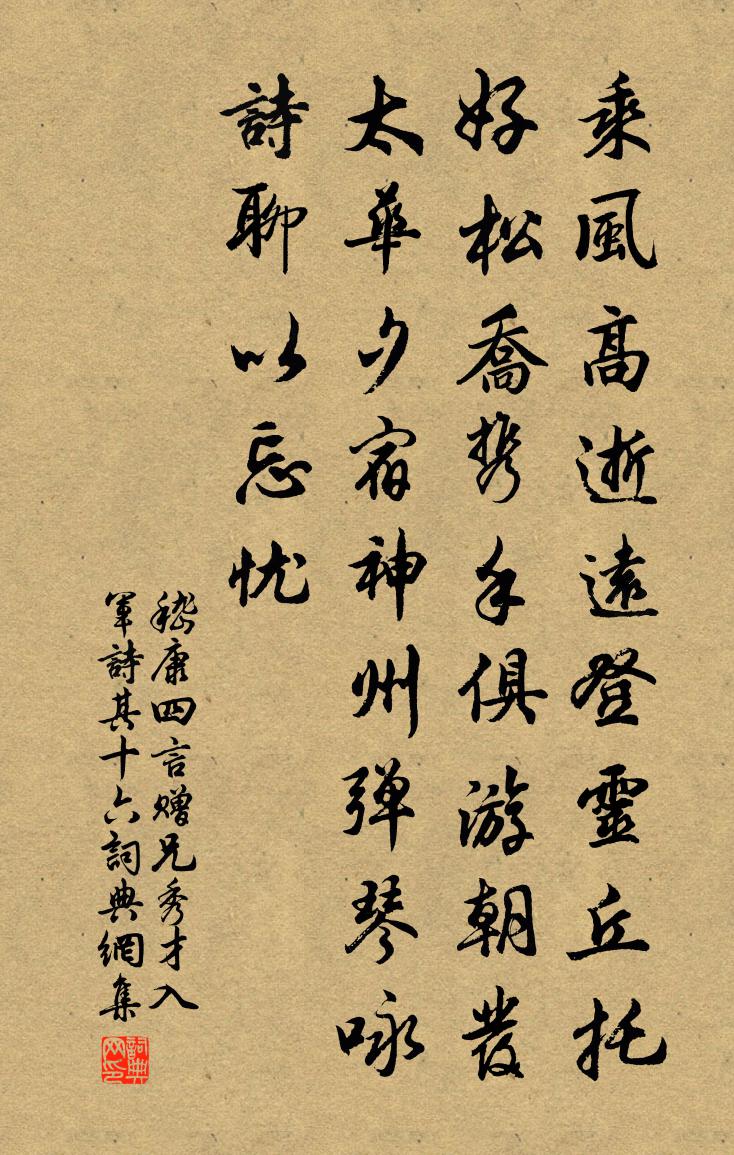 乘風高逝遠登靈丘托
好松喬携手俱游朝發
太華夕宿神州弹琴咏
詩聊以忘忧
嵇康四言赠兄秀才入
軍詩其十六詞典網集
詞典网印